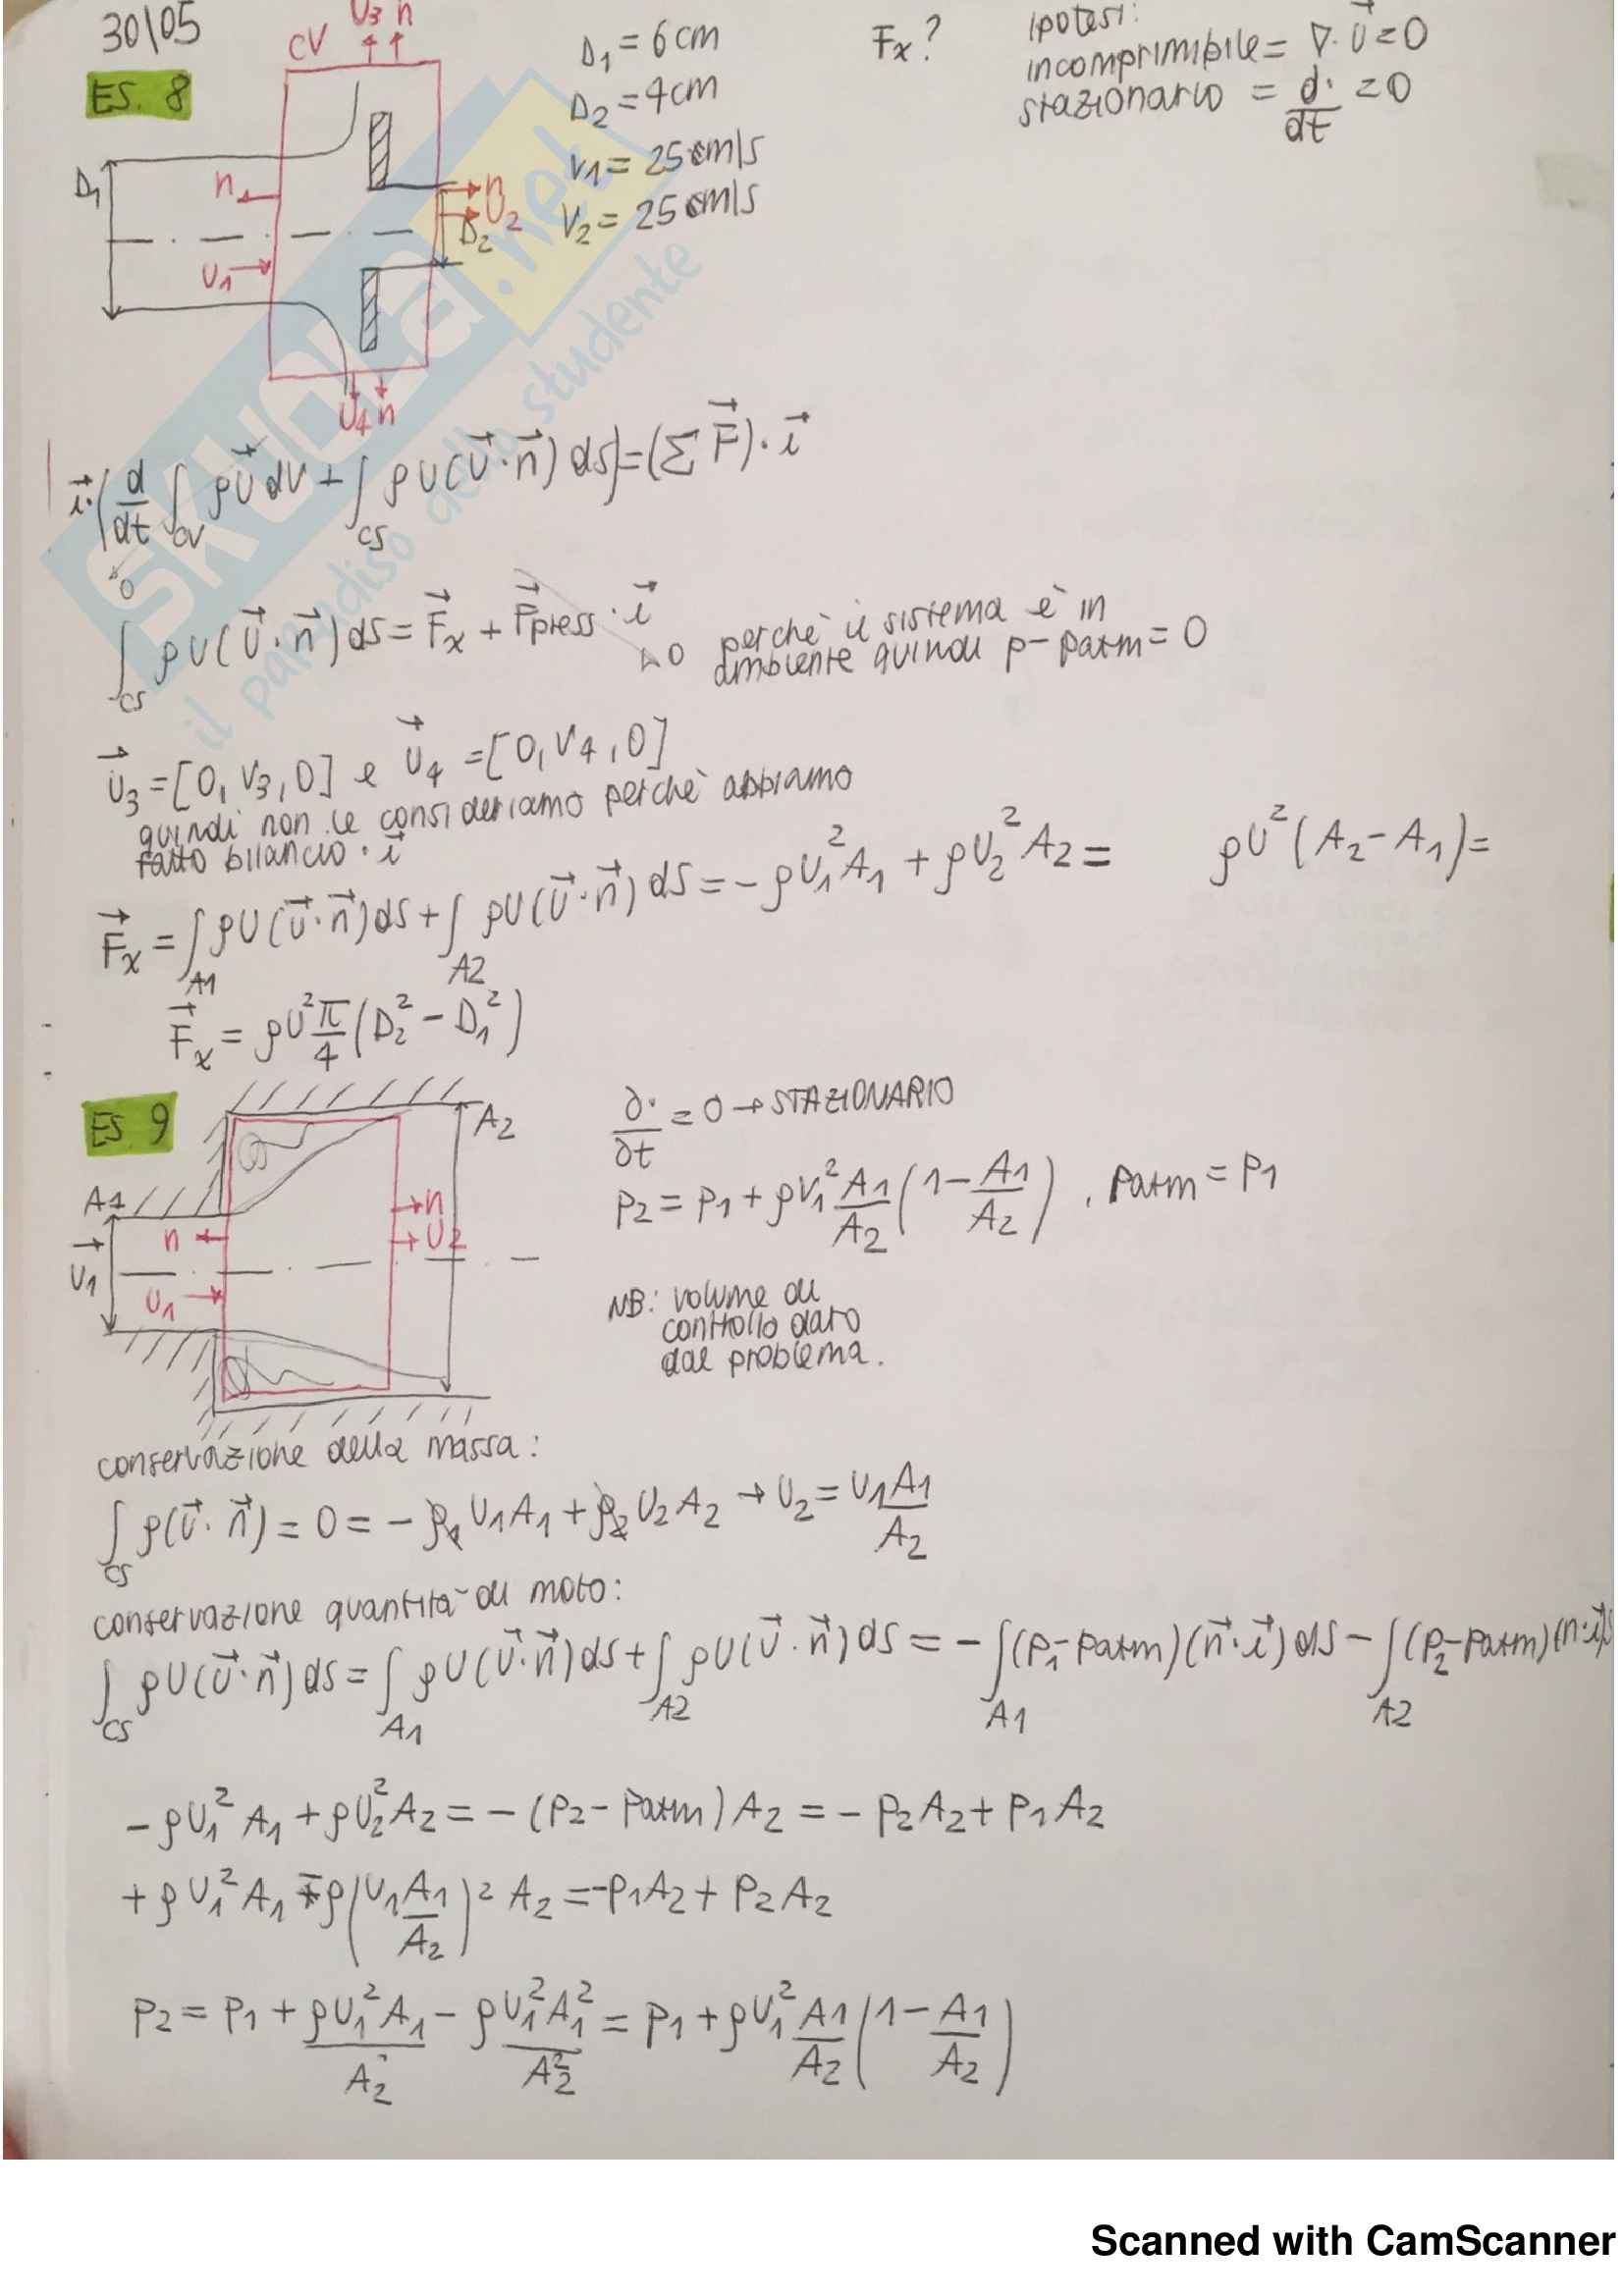 30\05
ES. 8
CV
U3 n
D1 = 6cm
D2 = 4cm
V1 = 25cm/s
V2 = 25cm/s
Fx?
Ipotesi:
incomprimibile = ∇·U⃗=0
stazionario = d·/dt = 0
D1
n
n
U2
D2
U1
U4 n
i⃗·(d/dt ∫CV ρU⃗dV + ∫CS ρU(U⃗·n⃗) dS) = (∑F⃗)·i⃗
→0
∫CS ρU(U⃗·n⃗)dS = F⃗x + F⃗press·i⃗ →0 perchè il sistema è in
ambiente quindi p-patm = 0
U⃗3 = [0, V3, 0] e U⃗4 = [0, V4, 0]
quindi non le consideriamo perchè abbiamo
fatto bilancio · i⃗
F⃗x = ∫A1 ρU(U⃗·n⃗)dS + ∫A2 ρU(U⃗·n⃗) dS = -ρU1²A1 + ρU2²A2 = ρU²(A2-A1)=
F⃗x = ρU² π/4 (D2² - D1²)
ES. 9
A2
∂·/∂t = 0 → STAZIONARIO
P2 = P1 + ρV1² A1/A2 (1 - A1/A2) , Patm = P1
A1
n
n
U2
U⃗1
U1
NB: volume di
controllo dato
dal problema.
conservazione della massa:
∫CS ρ(U⃗·n⃗) = 0 = -ρ1U1A1 + ρ2U2A2 → U2 = U1A1/A2
conservazione quantità di moto:
∫CS ρU(U⃗·n⃗)dS = ∫A1 ρU(U⃗·n⃗)dS + ∫A2 ρU(U⃗·n⃗)dS = -∫A1 (P1-Patm)(n⃗·i⃗)dS - ∫A2 (P2-Patm)(n·i⃗)
-ρU1²A1 + ρU2²A2 = -(P2-Patm)A2 = -P2A2 + P1A2
+ρU1²A1 - ρ(U1A1/A2)² A2 = -P1A2 + P2A2
P2 = P1 + ρU1²A1/A2 - ρU1²A1²/A2² = P1 + ρU1² A1/A2 (1 - A1/A2)
SKUOLA.net
il paradiso dello studente
Scanned with CamScanner